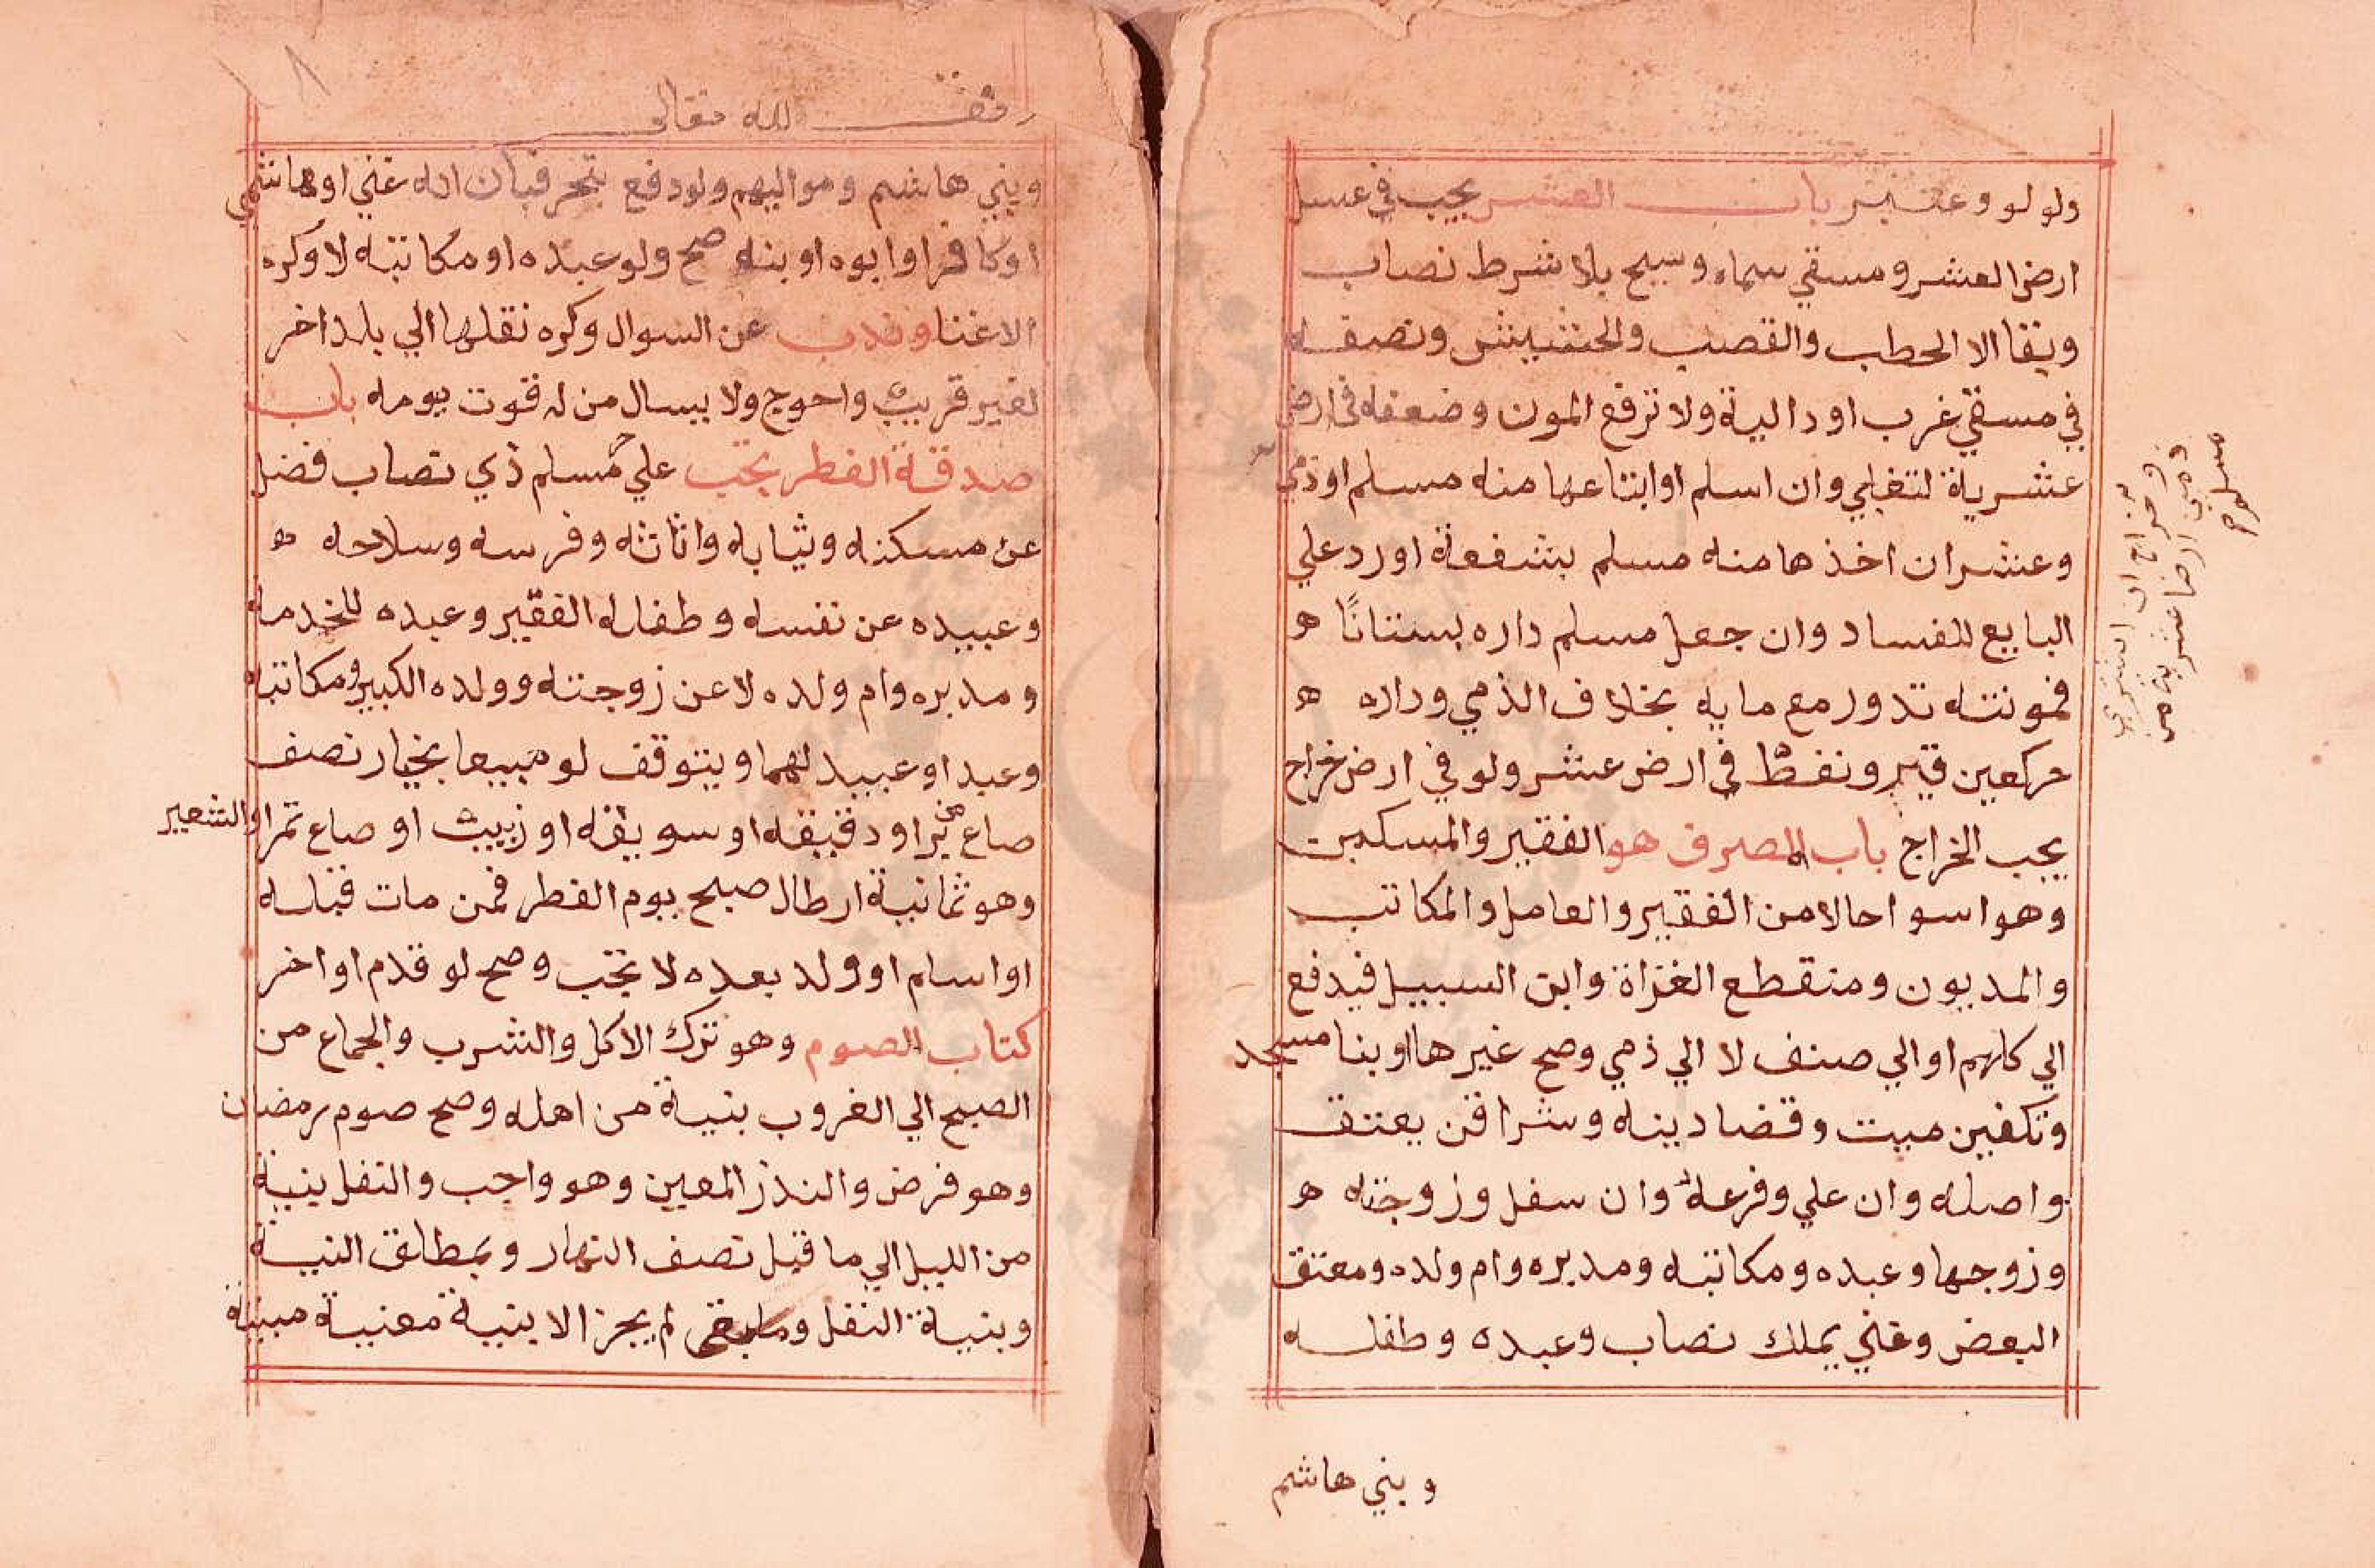 ولولو وعنبر باب العشر يجب في عسل
ارض العشر ومسقي سماء وسيح بلا شرط نصاب
وبقا الا الحطب والقصب والحشيش ونصفه
في مسقي غرب او دالية ولا ترفع المون وضعفه في ارض
عشرية لتغلبي وان اسلم او ابتاعها منه مسلم او ذمي
وعشر ان اخذها منه مسلم بشفعة او رد علي
البايع للفساد وان جعل مسلم داره بستانًا ه
فمونته تدور مع مايه بخلاف الذمي وداره ه
حركعين قير ونفط في ارض عشر ولو في ارض خراج
يجب الخراج باب المصرف هو الفقير والمسكين
وهو اسوا حالا من الفقير والعامل والمكاتب
والمديون ومنقطع الغزاة وابن السبيل فيدفع
الي كلهم او الي صنف لا الي ذمي وصح غيرها او بنا مسجد
وتكفين ميت وقضا دينه وشرا قن يعتق
واصله وان علي وفرعه وان سفل وزوجته ه
وزوجها وعبده ومكاتبه ومدبره وام ولده ومعتق
البعض وغني يملك نصاب وعبده وطفله
وبني هاشم
وخراج ان اشتري
ذمي ارضا عشرية من
مسلم صح
وقف لله تعالى
٨
وبني هاشم ومواليهم ولو دفع بتحر فبان انه غني او هاشمي
او كافر او ابوه او ابنه صح ولو عبده او مكاتبه لا وكره
الاغنا وندب عن السوال وكره نقلها الي بلد اخر
لغير قريب واحوج ولا يسال من له قوت يومه باب
صدقة الفطر تجب علي حر مسلم ذي نصاب فضل
عن مسكنه وثيابه واثاثه وفرسه وسلاحه ه
وعبيده عن نفسه وطفله الفقير وعبده للخدمة
ومدبره وام ولده لا عن زوجته وولده الكبير ومكاتبه
وعبد او عبيد لهما ويتوقف لو مبيعا بخيار نصف
صاع من بر او دقيقه او سويقه او زبيب او صاع تمر او الشعير
وهو ثمانية ارطال صبح يوم الفطر فمن مات قبله
او اسلم او ولد بعده لا تجب وصح لو قدم او اخر
كتاب الصوم وهو ترك الاكل والشرب والجماع من
الصبح الي الغروب بنية من اهله وصح صوم رمضان
وهو فرض والنذر المعين وهو واجب والنفل بنية
من الليل الي ما قبل نصف النهار وبمطلق النية
وبنية النفل وما بقي لم يجز الا بنية معنية مبيتة